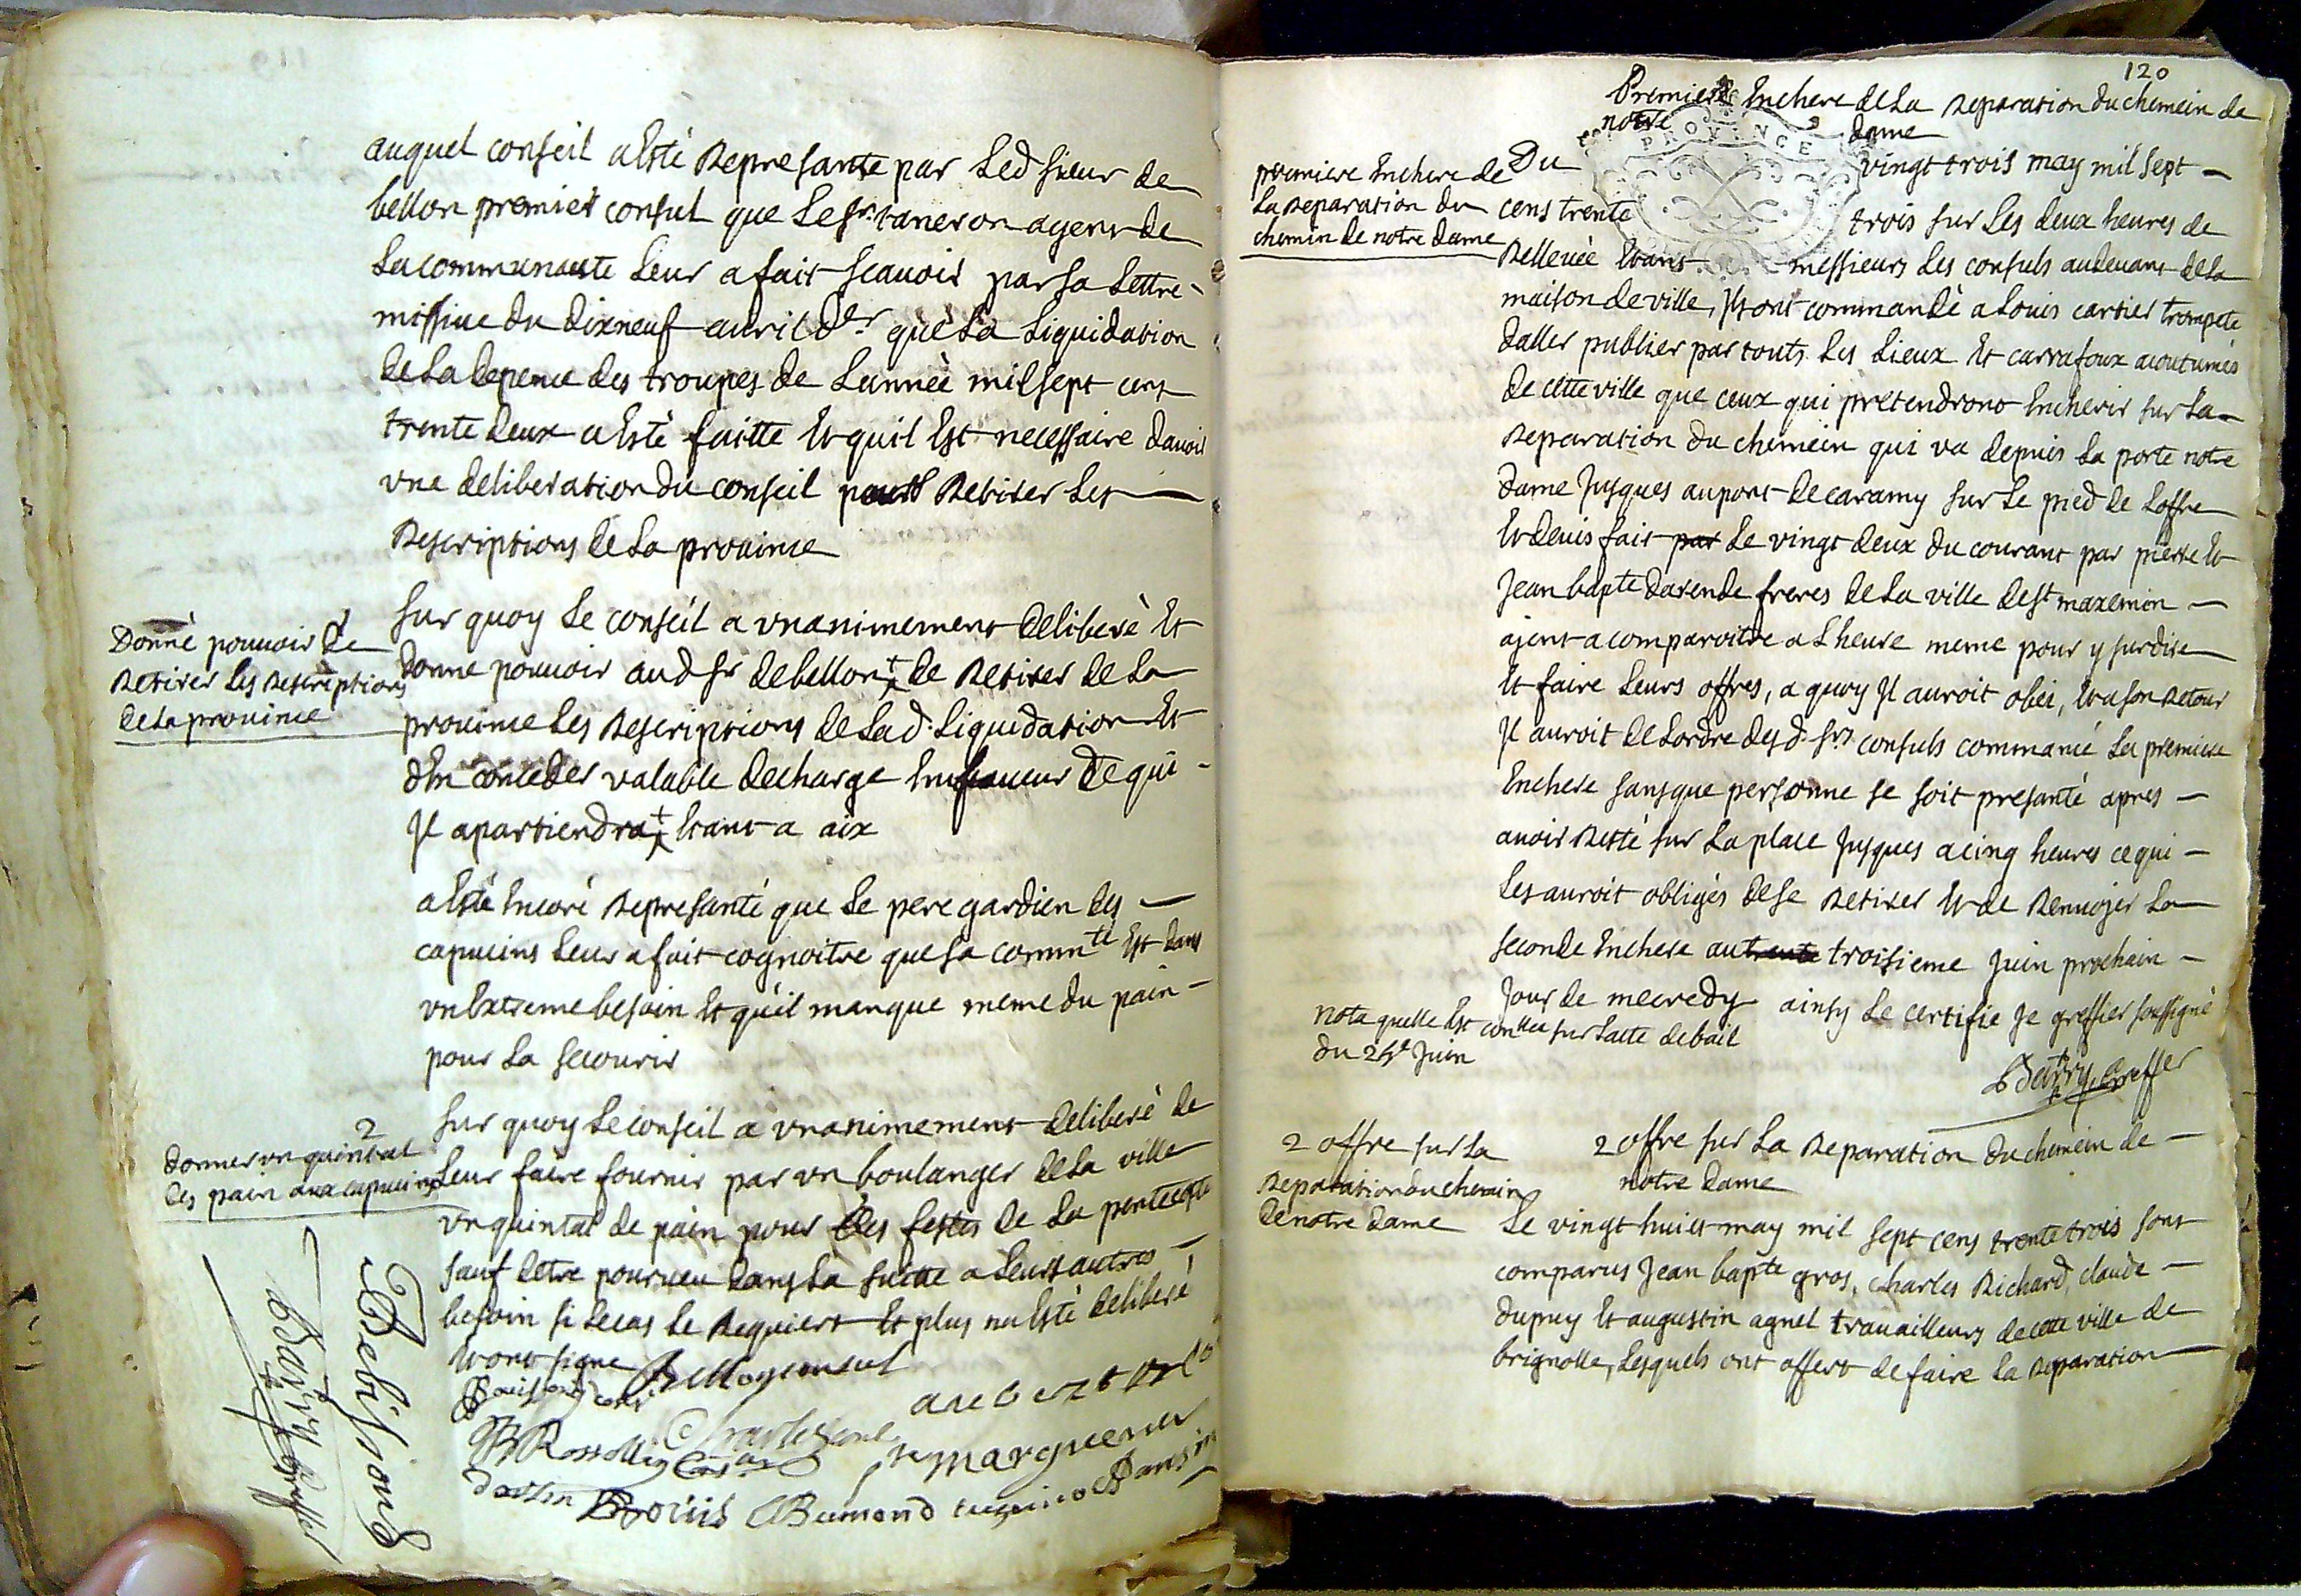 auquel conseil a esté representé par led sieur de
bellon premier consul que le sr. taneron agent de
la communauté leur a fait scavoir par sa lettre
missive du dixneuf avril der que la liquidation
de la depence des troupes de l'année mil sept cens
trente deux a esté faitte et quil est necessaire davoir
vne deliberation du conseil pour retirer les
rescriptions de la province
1
Donné pouvoir de
retirer les rescriptions
de la province
sur quoy le conseil a vnanimement deliberé et
donne pouvoir aud sr de bellon de retirer de la
province les rescriptions de lad. liquidation et
d'en conceder valable decharge en faveur de qui
Jl apartiendra estant a aix
a esté encore representé que le pere gardien des
capucins leur a fait cognoitre que sa commté est dans
vn extreme besoin et quil manque meme du pain
pour la secourir
2
donner vn quintal
des pain aux capucins
sur quoy le conseil a vnanimement deliberé de
leur faire fournir par vn boulanger de la ville
vn quintal de pain pour les festes de la pentecoste
sauf detre pourveu dans la suitte a leurs autres
besoin si le cas le requiert et plus na esté deliberé
et ont signe
Bouis
Barry Greffer
120
Premiere Enchere de la reparation du chemein de
notre dame
premiere Enchere de
la reparation du
chemin de notre dame
Du vingt trois may mil sept
cens trente trois sur les deux heures de
rellevée estant messieurs les consuls audevant de la
maison de ville, Jls ont commandé a Louis cartier trompete
daller publier par touts les lieux et carrafoux acoutumés
de cette ville que ceux qui pretendront encherir sur la
reparation du chemein qui va depuis la porte notre
dame Jusques au pont de caramy sur le pied de loffre
et devis fait par le vingt deux du courant par pierre et
Jean bapte darende freres de la ville de st maxemin
ajent a comparoitre a Lheure meme pour y surdire
et faire leurs offres, a quoy Jl auroit obei, et a son retour
Jl auroit de lordre desd. srs consuls commancé la premiere
enchere sans que personne se soit presanté apres
avoir resté sur la place Jusques a cinq heures ce qui
les auroit obligés de se retirer et de renvojer la
seconde enchere au trente troisieme Juin prochain
Jour de mecredy ainsy le certifie Je greffier soussigné
Nota quelle est contlée sur lacte de bail
du 24e Juin
Barry Greffer
2 offre sur la
reparation du chemin
de notre dame
2 offre sur la reparation du chemein de
notre dame
Le vingt huict may mil sept cens trente trois sont
comparus Jean bapte gros, charles Richard, claude
dupuy et augustin agnel travailleurs de cette ville de
brignolle, lesquels ont offert de faire la reparation